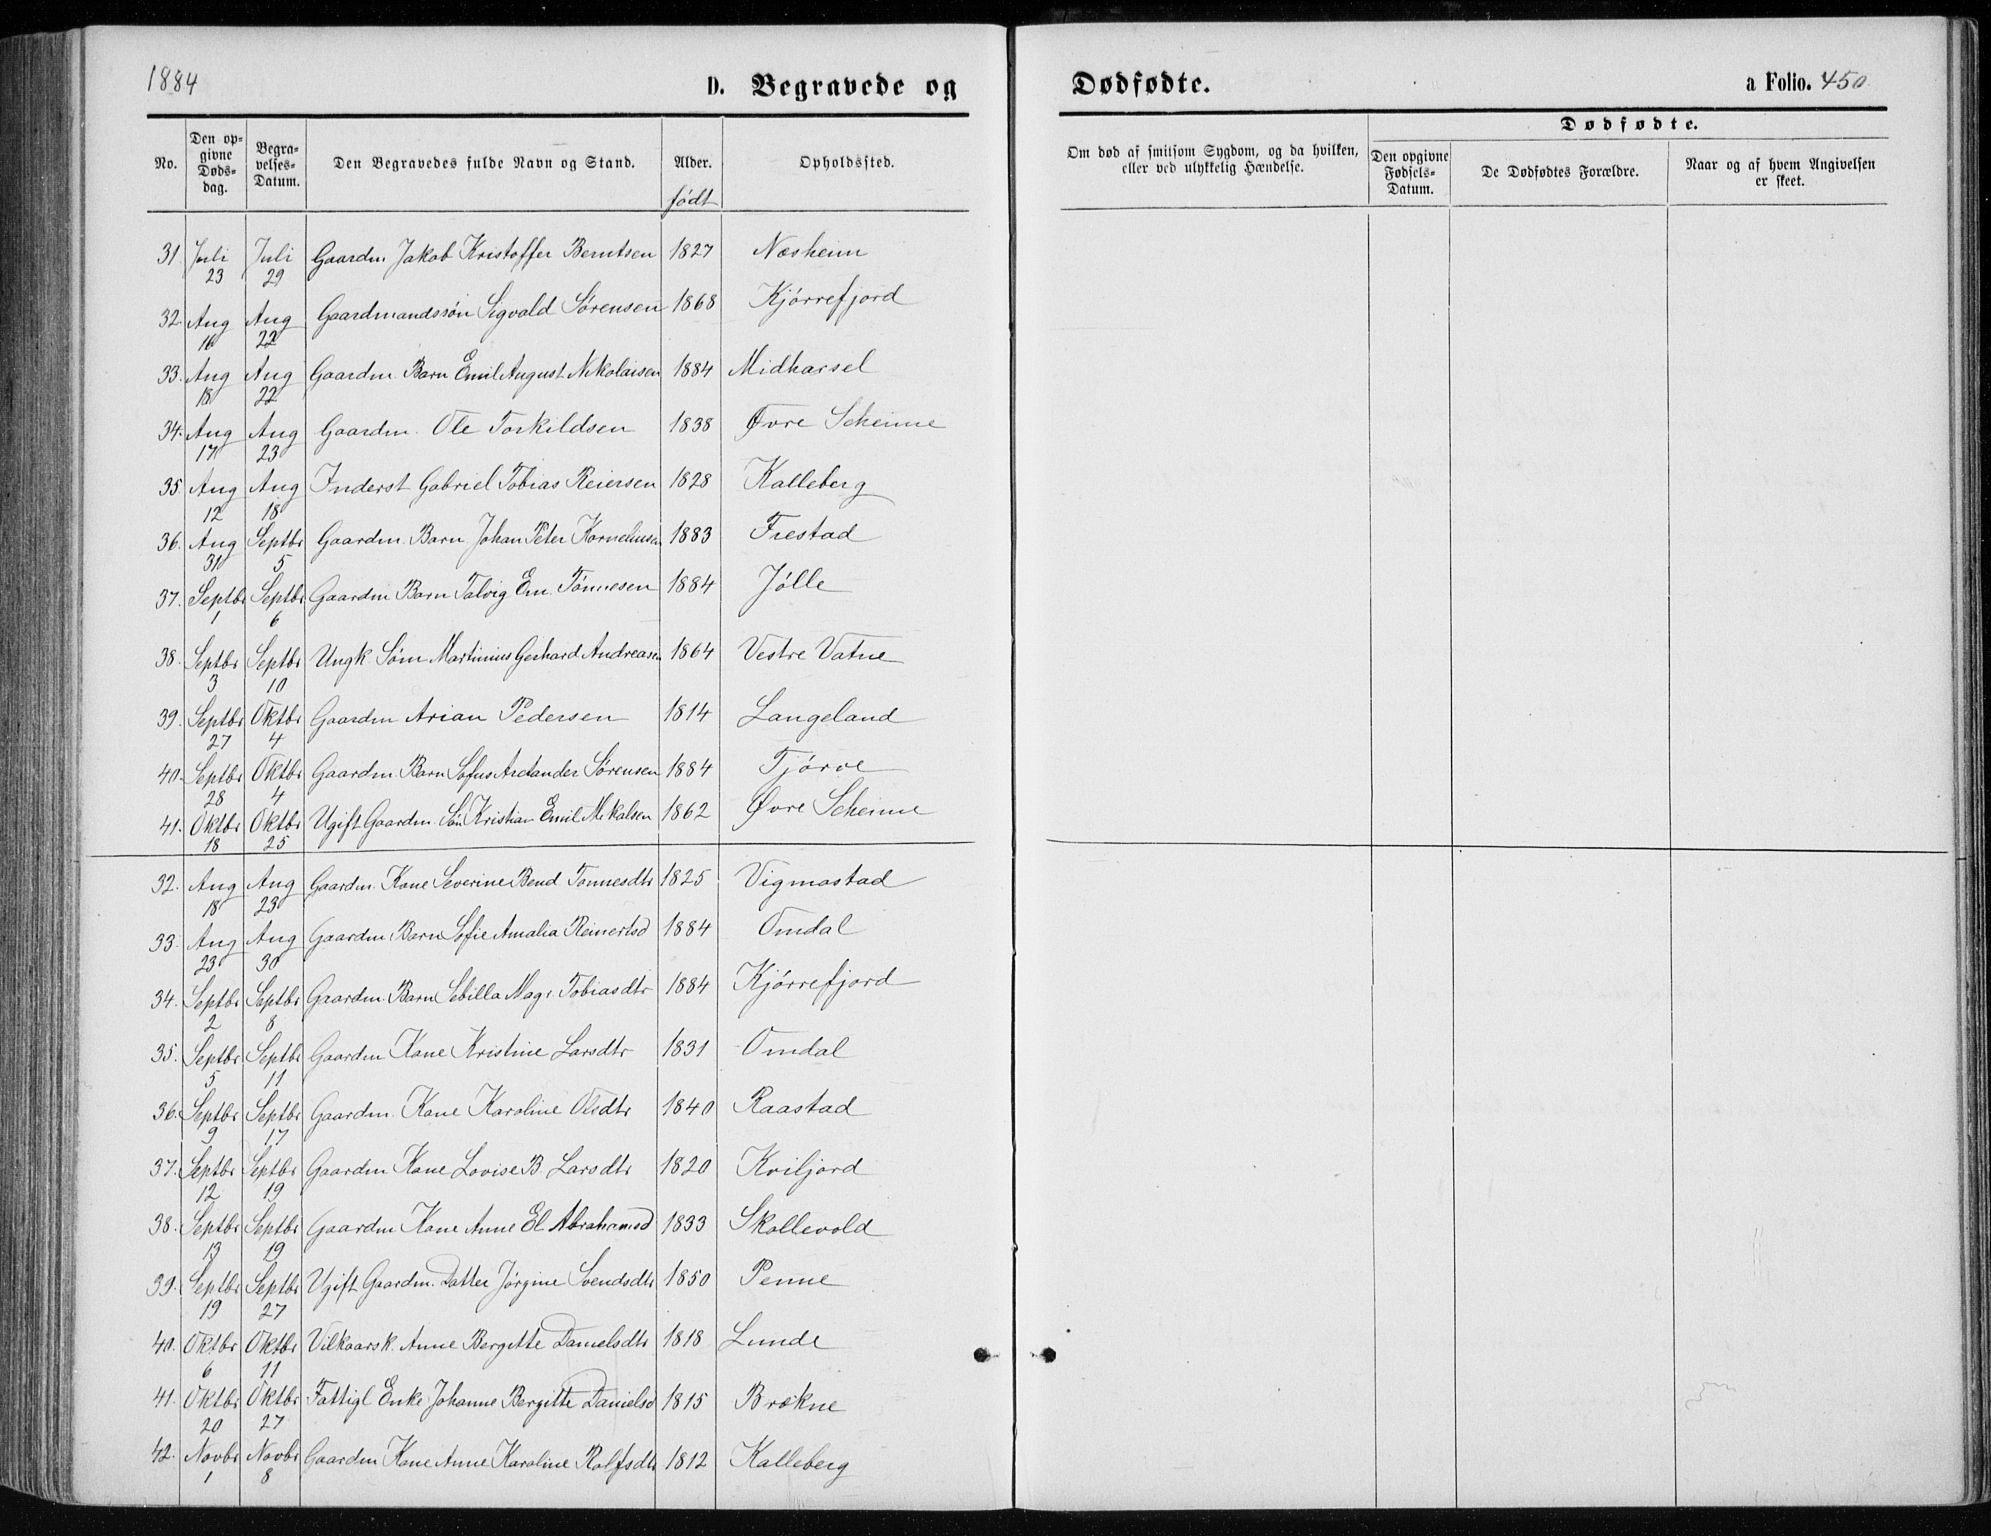 1884
D. Begravede og Dødfødte.
a Folio. 450.
No.
Den opgivne Dødsdag.
Begravelses-Datum.
Den Begravedes fulde Navn og Stand.
Alder. født
Opholdssted.
Om død af smitsom Sygdom, og da hvilken, eller ved ulykkelig Hændelse.
Dødfødte.
Den opgivne Fødsels-Datum.
De Dødfødtes Forældre.
Naar og af hvem Angivelsen er skeet.
31. Juli 23 Juli 29 Gaardm. Jakob Kristoffer Berntsen 1827 Næsheim
32. Aug 16 Aug 22 Gaardmandssøn Sigvald Sørensen 1868 Kjørrefjord
33. Aug 18 Aug 22 Gaardm. Barn Emil August Nikolaisen 1884 Midharsel
34. Aug 17 Aug 23 Gaardm. Ole Torkildsen 1838 Øvre Skeime
35. Aug 12 Aug 18 Inderst Gabriel Tobias Reiersen 1828 Kalleberg
36. Aug 31 Septbr 5 Gaardm. Barn Johan Peter Korneliusen 1883 Frestad
37. Septbr 1 Septbr 6 Gaardm Barn Talvig Em. Tønnesen 1884 Jølle
38. Septbr 3 Septbr 10 Ungk Søm Martinius Gerhard Andreasen 1864 Vestre Vatne
39. Septbr 27 Oktbr 4 Gaardm Arian Pedersen 1814 Langeland
40. Septbr 28 Oktbr 4 Gaardm. Barn Sofus Arctander Sørensen 1884 Tjørve
41. Oktbr 18 Oktbr 25 Ugift Gaardm. Søn Kristian Emil Mikalsen 1862 Øvre Skeime
32. Aug 18 Aug 23 Gaardm. Kone Severine Bend Tønnesdtr 1825 Vigmostad
33. Aug 23 Aug 30 Gaardm. Barn Sofie Amalia Reinertsd 1884 Omdal
34. Septbr 2 Septbr 8 Gaardm. Barn Sebilla Magr. Tobiasdtr 1884 Kjørrefjord
35. Septbr 5 Septbr 11 Gaardm Kone Kristine Larsdtr 1831 Omdal
36. Septbr 9 Septbr 17 Gaardm. Kone Karoline Olsdtr 1840 Raastad
37. Septbr 12 Septbr 19 Gaardm Kone Lovise B. Larsdtr 1820 Kviljord
38. Septbr 13 Septbr 19 Gaardm Kone Anne El Abrahamsd 1833 Skollevold
39. Septbr 19 Septbr 27 Ugift Gaardm. Datter Jørgine Svendsdtr 1850 Penne
40. Oktbr 6 Oktbr 11 Vilkaarsk. Anne Bergitte Danielsdtr 1818 Lunde
41. Oktbr 20 Oktbr 27 Fattigl Enke Johanne Bergitte Danielsd 1815 Brækne
42. Novbr 1 Novbr 8 Gaardm Kone Anne Karoline Rolfsdtr 1812 Kalleberg